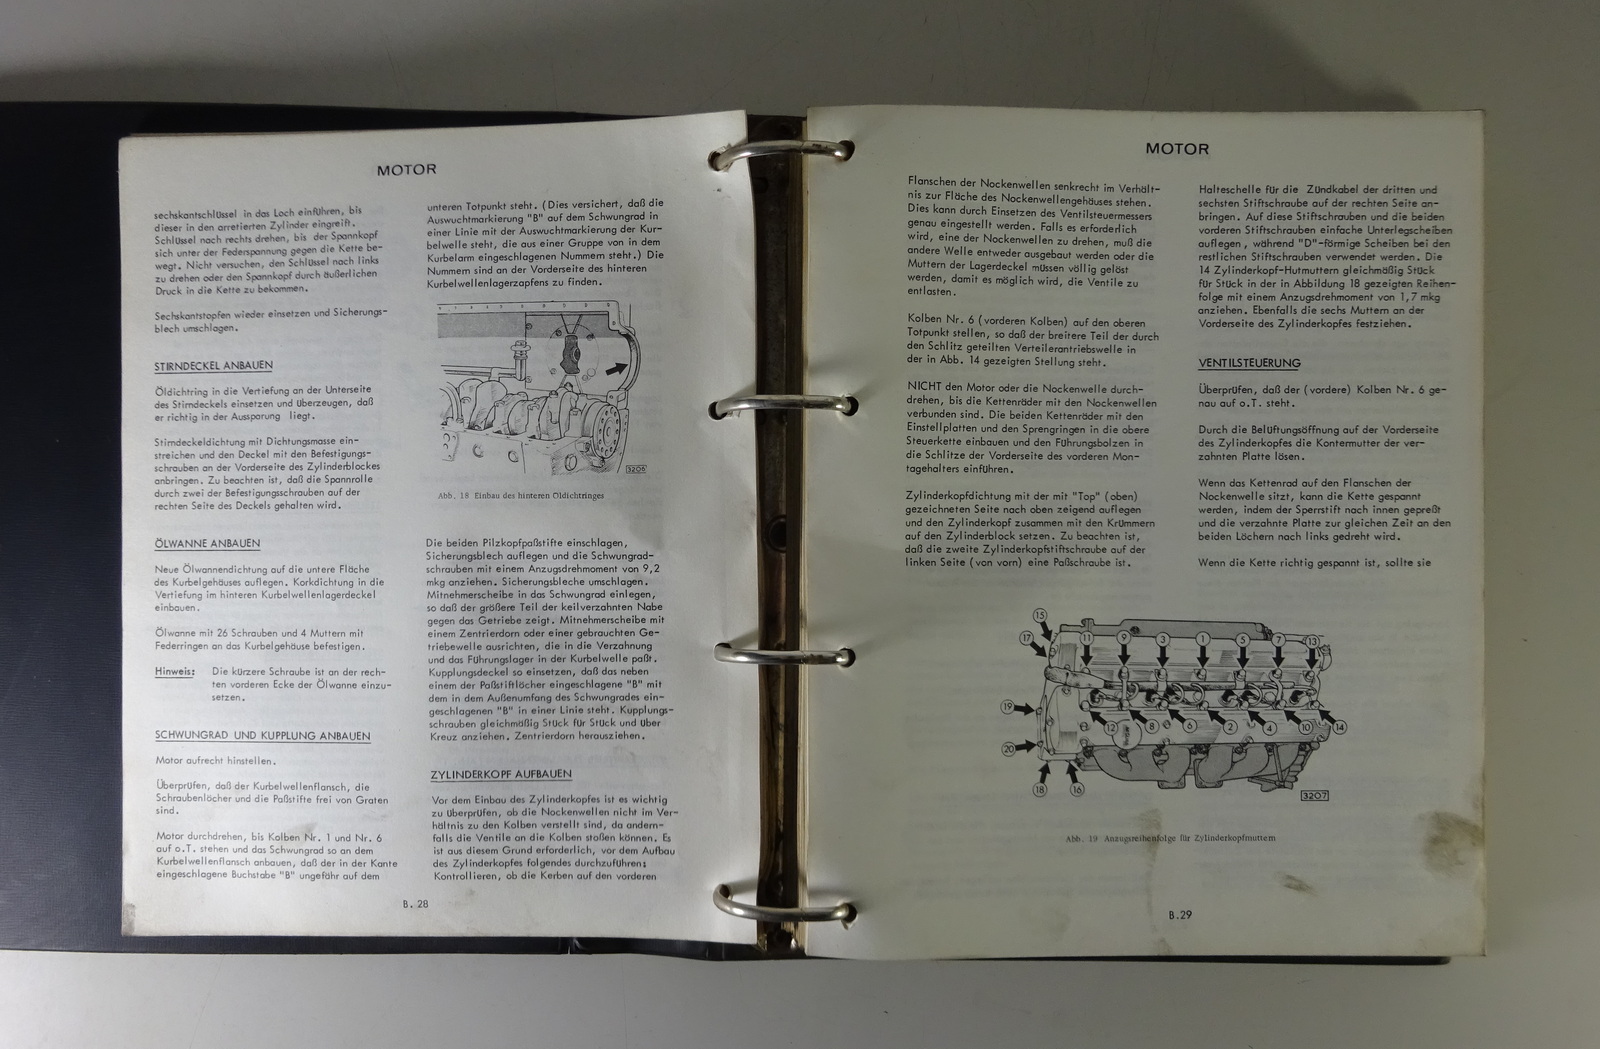 MOTOR
sechskantschlüssel in das Loch einführen, bis
dieser in den arretierten Zylinder eingreift.
Schlüssel nach rechts drehen, bis der Spannkopf
sich unter der Federspannung gegen die Kette be-
wegt. Nicht versuchen, den Schlüssel nach links
zu drehen oder den Spannkopf durch äußerlichen
Druck in die Kette zu bekommen.
Sechskantstopfen wieder einsetzen und Sicherungs-
blech umschlagen.
STIRNDECKEL ANBAUEN
Öldichtring in die Vertiefung an der Unterseite
des Stirndeckels einsetzen und überzeugen, daß
er richtig in der Aussparung liegt.
Stirndeckeldichtung mit Dichtungsmasse ein-
streichen und den Deckel mit den Befestigungs-
schrauben an der Vorderseite des Zylinderblockes
anbringen. Zu beachten ist, daß die Spannrolle
durch zwei der Befestigungsschrauben auf der
rechten Seite des Deckels gehalten wird.
ÖLWANNE ANBAUEN
Neue Ölwannendichtung auf die untere Fläche
des Kurbelgehäuses auflegen. Korkdichtung in die
Vertiefung im hinteren Kurbelwellenlagerdeckel
einbauen.
Ölwanne mit 26 Schrauben und 4 Muttern mit
Federringen an das Kurbelgehäuse befestigen.
Hinweis: Die kürzere Schraube ist an der rech-
ten vorderen Ecke der Ölwanne einzu-
setzen.
SCHWUNGRAD UND KUPPLUNG ANBAUEN
Motor aufrecht hinstellen.
Überprüfen, daß der Kurbelwellenflansch, die
Schraubenlöcher und die Paßstifte frei von Graten
sind.
Motor durchdrehen, bis Kolben Nr. 1 und Nr. 6
auf o.T. stehen und das Schwungrad so an dem
Kurbelwellenflansch anbauen, daß der in der Kante
eingeschlagene Buchstabe "B" ungefähr auf dem
unteren Totpunkt steht. (Dies versichert, daß die
Auswuchtmarkierung "B" auf dem Schwungrad in
einer Linie mit der Auswuchtmarkierung der Kur-
belwelle steht, die aus einer Gruppe von in dem
Kurbelarm eingeschlagenen Nummern steht.) Die
Nummern sind an der Vorderseite des hinteren
Kurbelwellenlagerzapfens zu finden.
3206
Abb. 18 Einbau des hinteren Öldichtringes
Die beiden Pilzkopfpaßstifte einschlagen,
Sicherungsblech auflegen und die Schwungrad-
schrauben mit einem Anzugsdrehmoment von 9,2
mkg anziehen. Sicherungsbleche umschlagen.
Mitnehmerscheibe in das Schwungrad einlegen,
so daß der größere Teil der keilverzahnten Nabe
gegen das Getriebe zeigt. Mitnehmerscheibe mit
einem Zentrierdorn oder einer gebrauchten Ge-
triebewelle ausrichten, die in die Verzahnung
und das Führungslager in der Kurbelwelle paßt.
Kupplungsdeckel so einsetzen, daß das neben
einem der Paßstiftlöcher eingeschlagene "B" mit
dem in dem Außenumfang des Schwungrades ein-
geschlagenen "B" in einer Linie steht. Kupplungs-
schrauben gleichmäßig Stück für Stück und über
Kreuz anziehen. Zentrierdorn herausziehen.
ZYLINDERKOPF AUFBAUEN
Vor dem Einbau des Zylinderkopfes ist es wichtig
zu überprüfen, ob die Nockenwellen nicht im Ver-
hältnis zu den Kolben verstellt sind, da andern-
falls die Ventile an die Kolben stoßen können. Es
ist aus diesem Grund erforderlich, vor dem Aufbau
des Zylinderkopfes folgendes durchzuführen:
Kontrollieren, ob die Kerben auf den vorderen
B. 28
MOTOR
Flanschen der Nockenwellen senkrecht im Verhält-
nis zur Fläche des Nockenwellengehäuses stehen.
Dies kann durch Einsetzen des Ventilsteuermessers
genau eingestellt werden. Falls es erforderlich
wird, eine der Nockenwellen zu drehen, muß die
andere Welle entweder ausgebaut werden oder die
Muttern der Lagerdeckel müssen völlig gelöst
werden, damit es möglich wird, die Ventile zu
entlasten.
Kolben Nr. 6 (vorderen Kolben) auf den oberen
Totpunkt stellen, so daß der breitere Teil der durch
den Schlitz geteilten Verteilerantriebswelle in
der in Abb. 14 gezeigten Stellung steht.
NICHT den Motor oder die Nockenwelle durch-
drehen, bis die Kettenräder mit den Nockenwellen
verbunden sind. Die beiden Kettenräder mit den
Einstellplatten und den Sprengringen in die obere
Steuerkette einbauen und den Führungsbolzen in
die Schlitze der Vorderseite des vorderen Mon-
tagehalters einführen.
Zylinderkopfdichtung mit der mit "Top" (oben)
gezeichneten Seite nach oben zeigend auflegen
und den Zylinderkopf zusammen mit den Krümmern
auf den Zylinderblock setzen. Zu beachten ist,
daß die zweite Zylinderkopfstiftschraube auf der
linken Seite (von vorn) eine Paßschraube ist.
Halteschelle für die Zündkabel der dritten und
sechsten Stiftschraube auf der rechten Seite an-
bringen. Auf diese Stiftschrauben und die beiden
vorderen Stiftschrauben einfache Unterlegscheiben
auflegen, während "D"-förmige Scheiben bei den
restlichen Stiftschrauben verwendet werden. Die
14 Zylinderkopf-Hutmuttern gleichmäßig Stück
für Stück in der in Abbildung 18 gezeigten Reihen-
folge mit einem Anzugsdrehmoment von 1,7 mkg
anziehen. Ebenfalls die sechs Muttern an der
Vorderseite des Zylinderkopfes festziehen.
VENTILSTEUERUNG
Überprüfen, daß der (vordere) Kolben Nr. 6 ge-
nau auf o.T. steht.
Durch die Belüftungsöffnung auf der Vorderseite
des Zylinderkopfes die Kontermutter der ver-
zahnten Platte lösen.
Wenn das Kettenrad auf den Flanschen der
Nockenwelle sitzt, kann die Kette gespannt
werden, indem der Sperrstift nach innen gepreßt
und die verzahnte Platte zur gleichen Zeit an den
beiden Löchern nach links gedreht wird.
Wenn die Kette richtig gespannt ist, sollte sie
15
17 11 9 3 1 5 7 13
19
12 8 6 2 4 10 14
20
18 16
3207
Abb. 19 Anzugsreihenfolge für Zylinderkopfmuttern
B.29